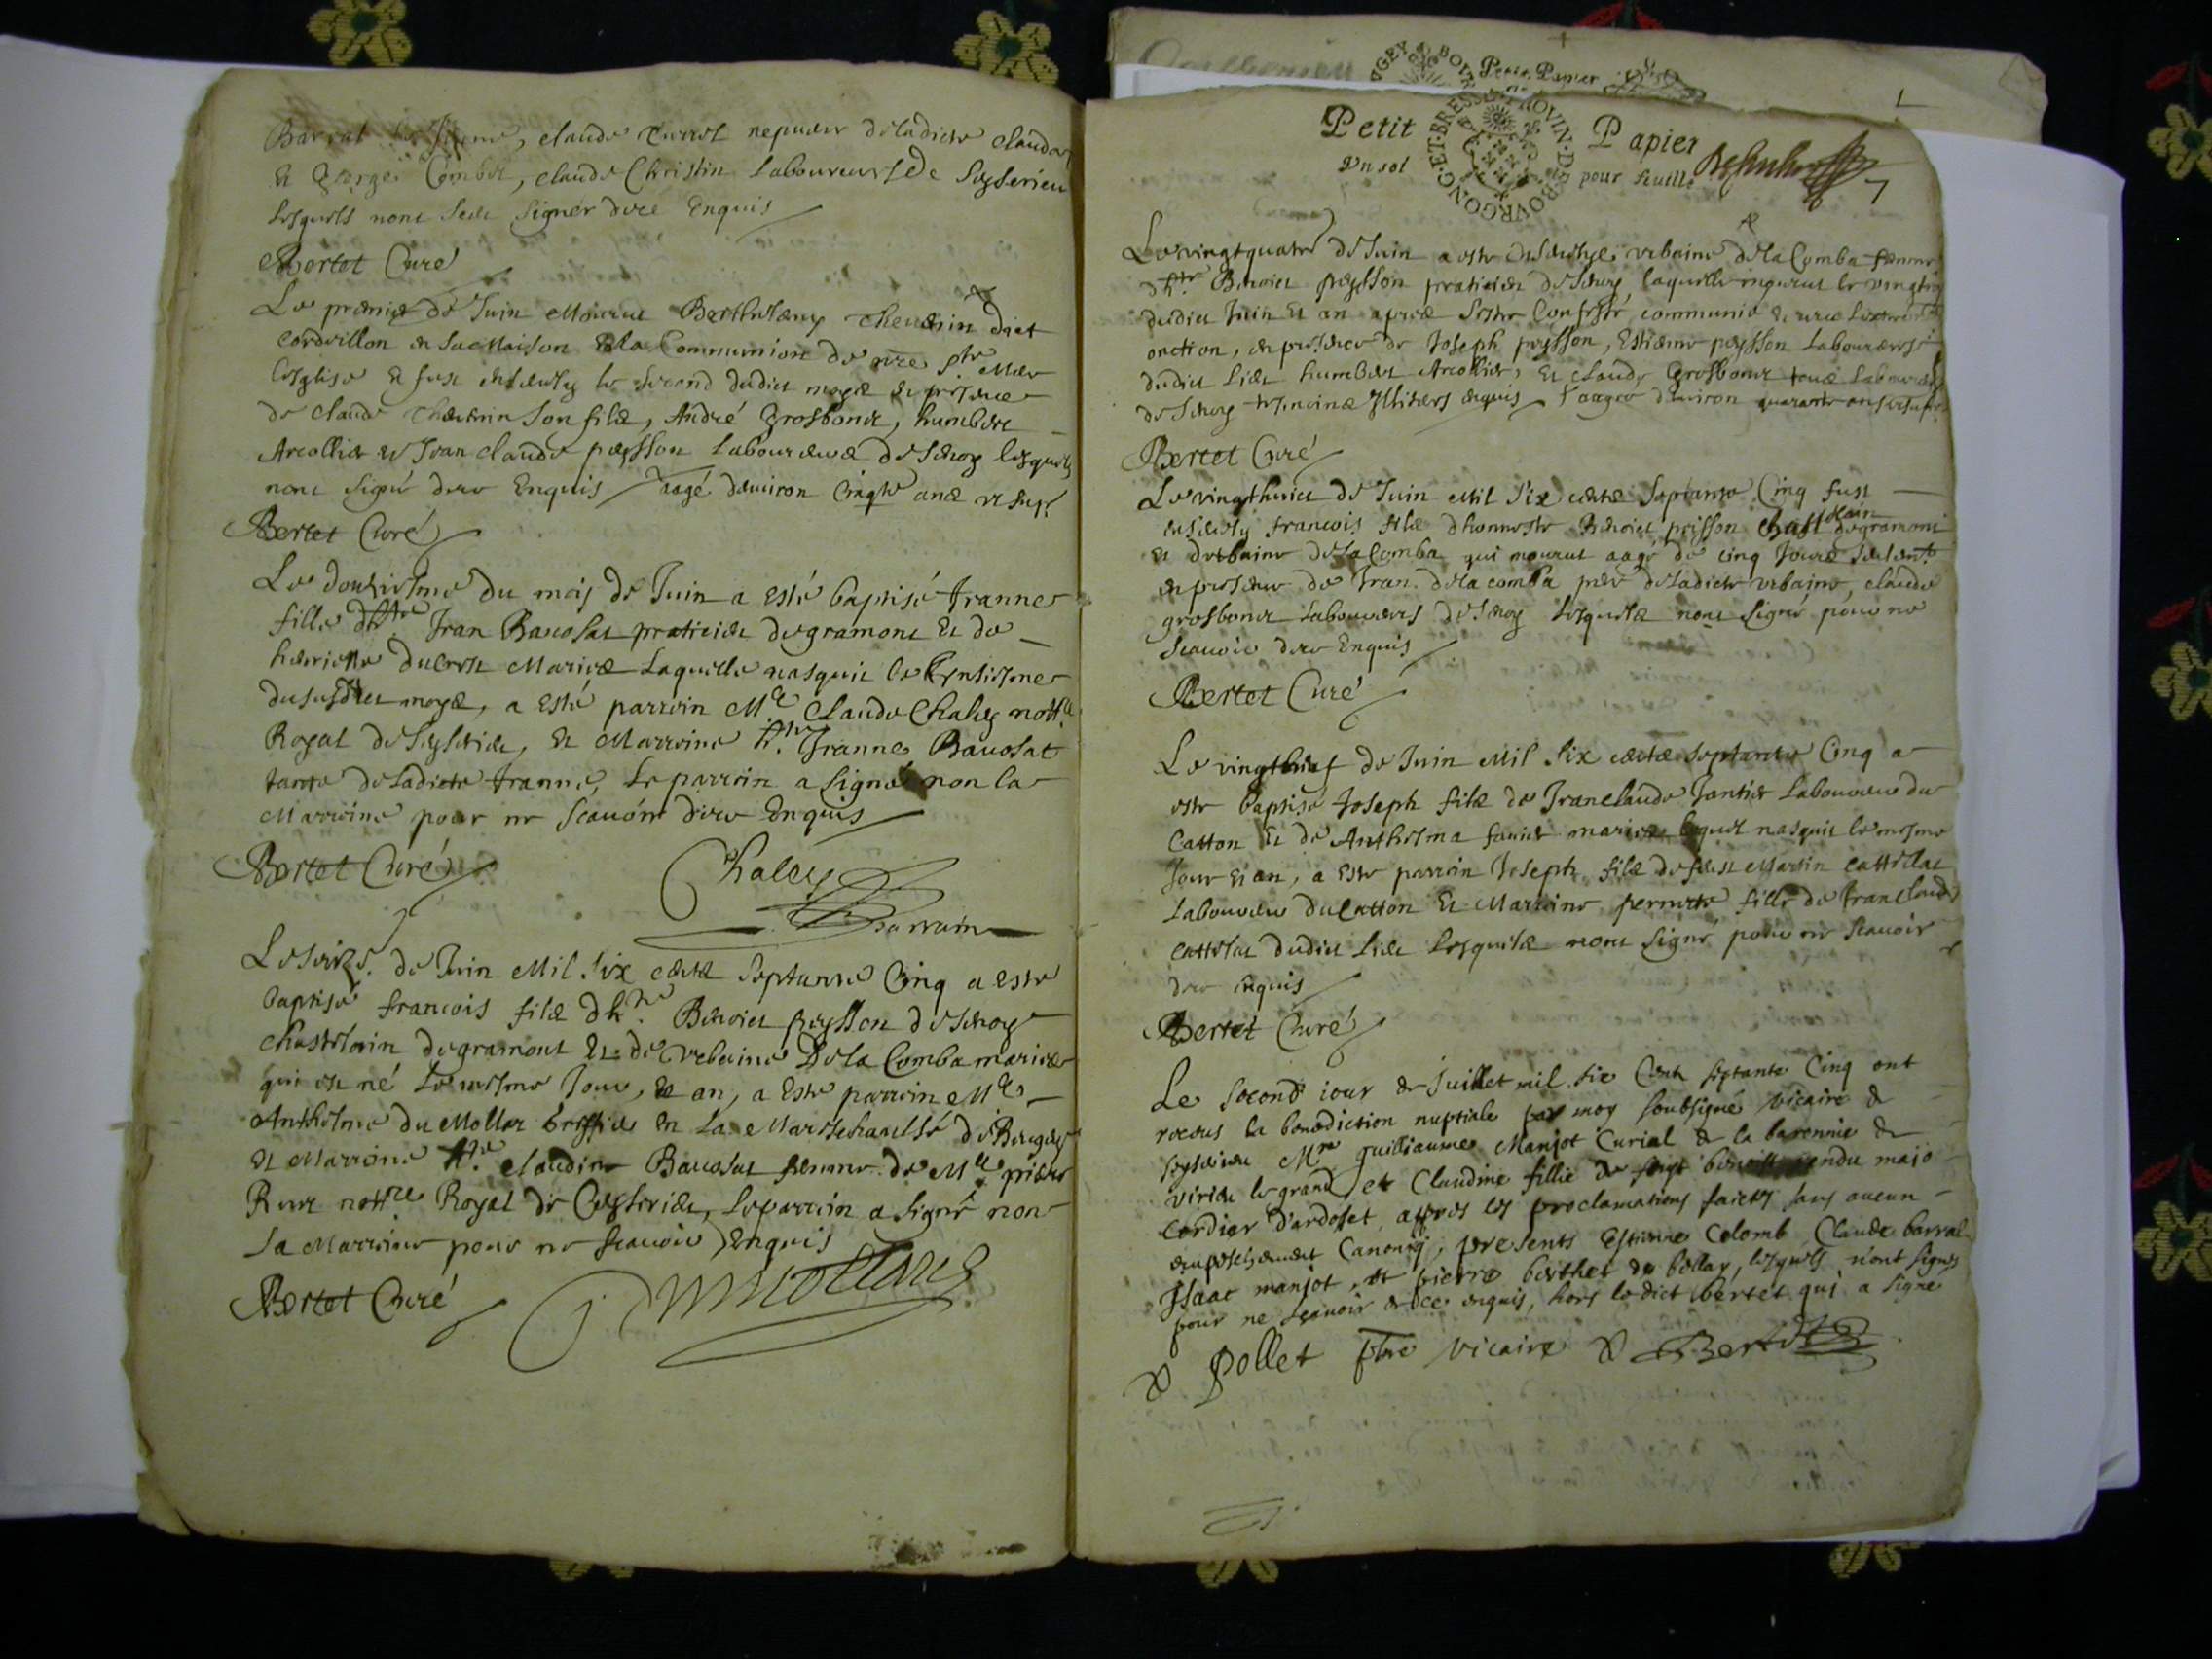 Barral , claude Curret nepueur de ladicte clauda
et George Combet, claude Christin laboureurs de Seyserieu
lesquels nont sceu signer de ce Enquis
Bertet Curé
Le premier de Juin Mourut Barthelemy Cheurin dict
Cordeillon en sa Maison la Communion de nre Ste Mere
lesglise et fust enseuely le second dudict moys en presence
de Claude Cheurin son fils, André Grosbonet, humbert
Arcollier et Jean claude peysson laboureurs de Senoy lesquels
nont signé de ce Enquis aagé denviron Cinqte ans
Bertet Curé
Le douziesme du mois de Juin a esté baptisé Jeanne
fille dhble Jean Baucosat praticien de gramont Et de
henriette Mariés Laquelle nasquit le
du susdict moys, a esté parroin Me Claude Chaley nottre
Royal de Seyserieu, et Marroine hble Jeanne Baucosat
tante de ladicte Jeanne, le parroin a signé non la
Marroine pour ne scauoir de ce Enquis
Bertet Curé
Chaley
parrain
Le seize de Juin Mil six cents septante Cinq a este
baptisé francois fils dhble Benoict peysson de Senoy
Chastelain de gramont Et de Vrbaine De la Comba mariés
qui est né le mesme Jour, et an, a Este parroin Me
Anthelme du Mollar Greffier En la Mareschaussé de Bugey
Et Marroine hble Claudine Baucosat femme de Me
nottre Royal de Ceyserieu, le parroin a signé non
la Marroine pour ne scauoir Enquis
Bertet Curé
Dumollard
Petit Papier
Vn sol pour feuille
BOVRGONG·ET·BRESS
7
Le vingtquatre de Juin a este enseuelye vrbaine de la Comba femme
dhble Benoict peysson praticien de Senoy laquelle mourut le
dudict Juin Et an apres sestre Confessé, communié
onction, en presence de Joseph peysson, Estienne peysson laboureurs
dudict lieu humbert Arcollier, et claude Grosbonet laboureurs
de Senoy enquis aagée denviron quarante ans
Bertet Curé
Le vingthuict de Juin Mil Six cents Septante Cinq fust
enseuely francois fils dhonneste Benoict peisson Chastelain de gramont
et de vrbaine de la Comba qui mourut aagé de cinq Jours
en presence de Jean de la comba pere de ladicte vrbaine, claude
grosbonet laboureurs de Senoy lesquels nont signé pour ne
Scauoir de ce Enquis
Bertet Curé
Le vingtneuf de Juin Mil six cents septante Cinq a
este baptisé Joseph fils de Jeanclaude Jantet laboureur du
Catton Et de Anthelma mariés lequel nasquit le mesme
Jour et an, a Este parroin Joseph fils de feust Martin
laboureur du Catton Et Marroine pernette fille de Jean Claude
dudict lieu lesquels nont signé pour ne scauoir
de ce enquis
Bertet Curé
Le second iour de Juillet mil six Cent septante Cinq ont
receus la benediction nuptiale par moy soubsigné vicaire de
Seyserieu Mre guilliaume Manjot Curial de la baronnie de
virieu le grand et Claudine fillie de benoist majo
cordier d'ardosset, apres les proclamations faictes sans aucun
empeschement Canoniq, presents Estienne Colomb Claude barral
Isaac manjot, et pierre berthet du bollay, lesquels n'ont signes
pour ne scauoir de ce enquis, hors le dict bertet qui a signé
Pollet ptre vicaire Bertet